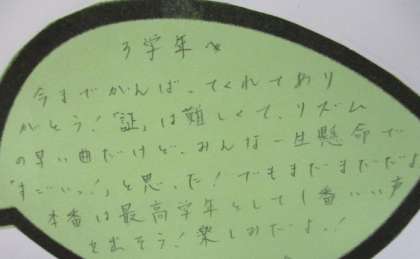 3学年へ
今までがんばってくれてあり
がとう！「証」は難しくて、リズム
の早い曲だけど、みんな一生懸命で
「すごいっ！」と思った！でもまだまだだよ
本番は最高学年として1番いい声
を出そう！楽しみだよ！